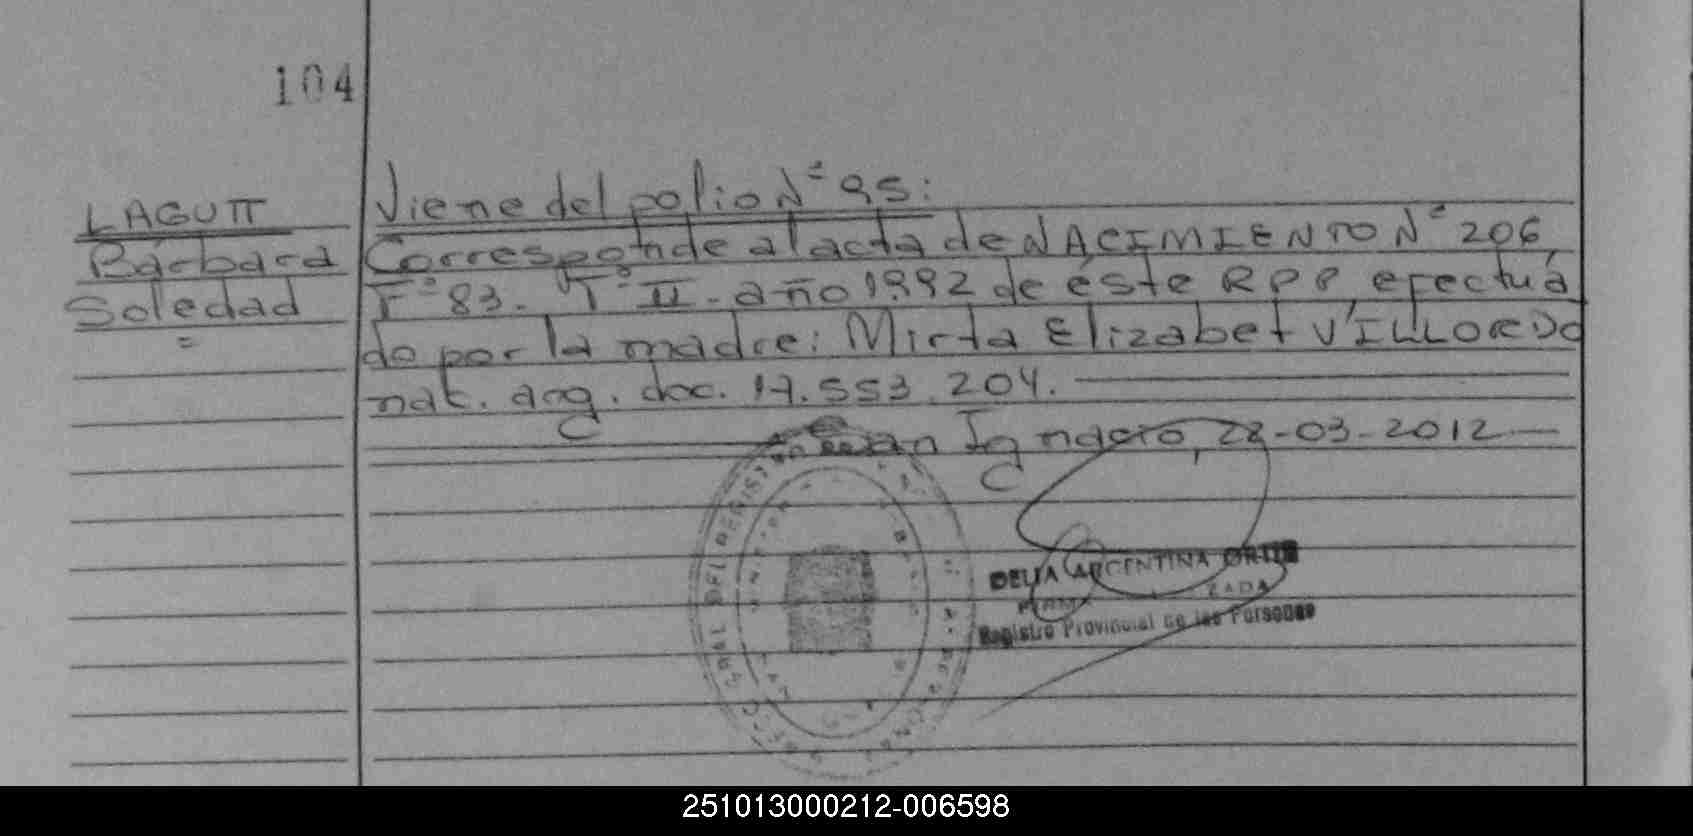 104
LAGUTT
Bárbara
Soledad
=
Viene del folio N° 95:
Corresponde al acta de NACIMIENTO N° 206,
F° 83. T° II. año 1992 de éste RPP, efectuá
do por la madre: Mirta Elizabet VILLORDO
nat. arg. doc. 17.553.204.
San Ignacio, 22-03-2012
DELIA ARGENTINA ORTIZ
Registro Provincial de las Personas
251013000212-006598